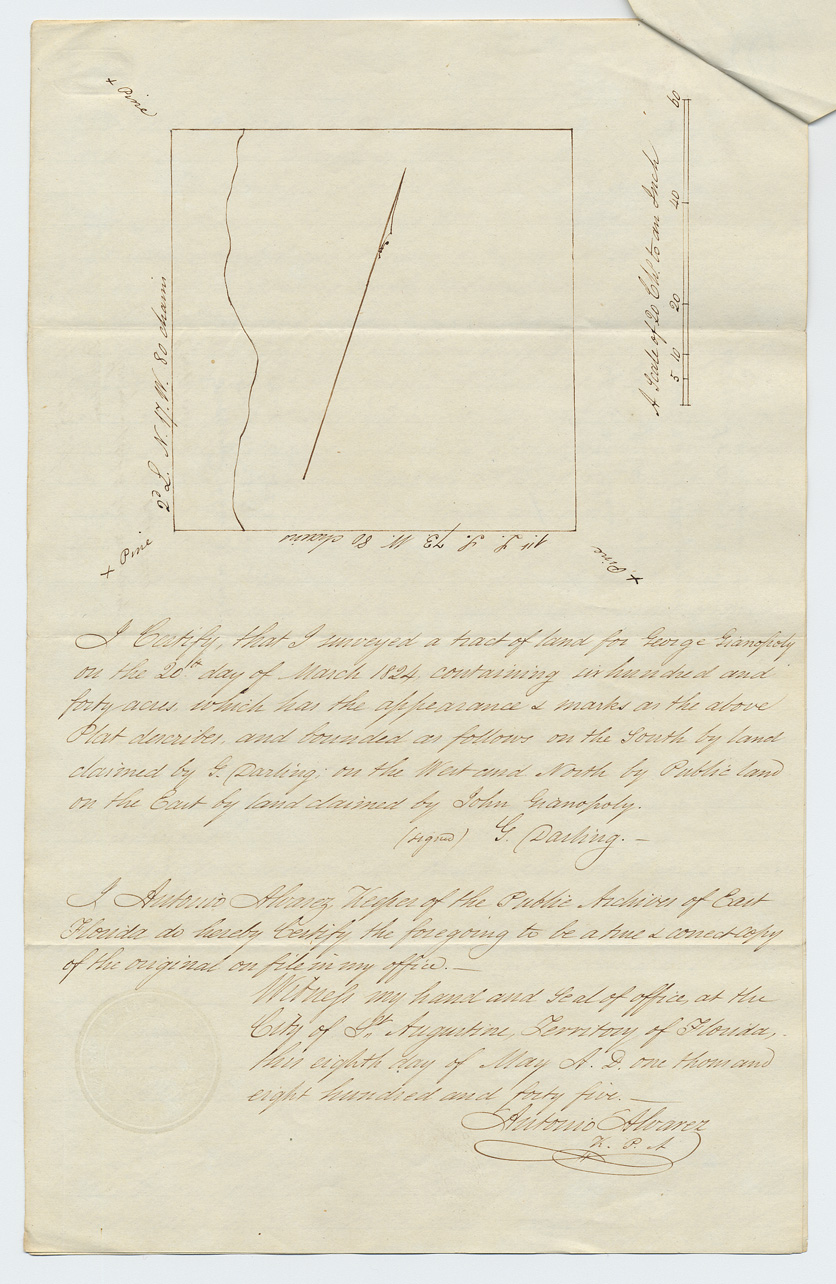 x Pine
60
40
20
10
5
A Scale of 20 Chs. to an Inch
2d L. N. 17. W. 80 chains
1st L. S. 73 W. 80 chains
x Pine
x Pine
I Certify, that I surveyed a tract of land for George Gianopoly
on the 20th day of March 1824. containing six hundred and
forty acres, which has the appearance & marks as the above
Plat describes, and bounded as follows on the South by land
claimed by G. Darling; on the West and North by Public land
on the East by land claimed by John Gianopoly.
(signed) G. Darling. —
I Antonio Alvarez, Keeper of the Public Archives of East
Florida do hereby Certify the foregoing to be a true & correct copy
of the original on file in my office. —
Witness my hand and Seal of office, at the
City of St. Augustine, Territory of Florida,
this eighth day of May A. D. one thousand
eight hundred and forty five. —
Antonio Alvarez
K. P. A